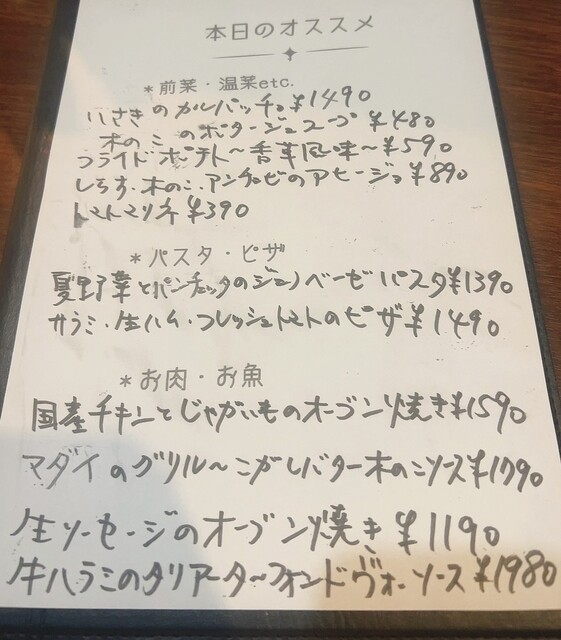 本日のオススメ
*前菜・温菜etc.
いさきのカルパッチョ¥1490
木のこのポタージュスープ ¥480
フライドポテト〜香草風味〜¥590
しらす・木のこ・アンチョビのアヒージョ¥890
トマトマリネ¥390
*パスタ・ピザ
夏野菜とパンチェッタのジェノベーゼパスタ¥1390
サラミ・生ハム・フレッシュトマトのピザ¥1490
*お肉・お魚
国産チキンとじゃがいものオーブン焼き¥1590
マダイのグリル〜こがしバター木のこソース¥1790
生ソーセージのオーブン焼き¥1190
牛ハラミのタリアータ〜フォンドヴォーソース¥1980